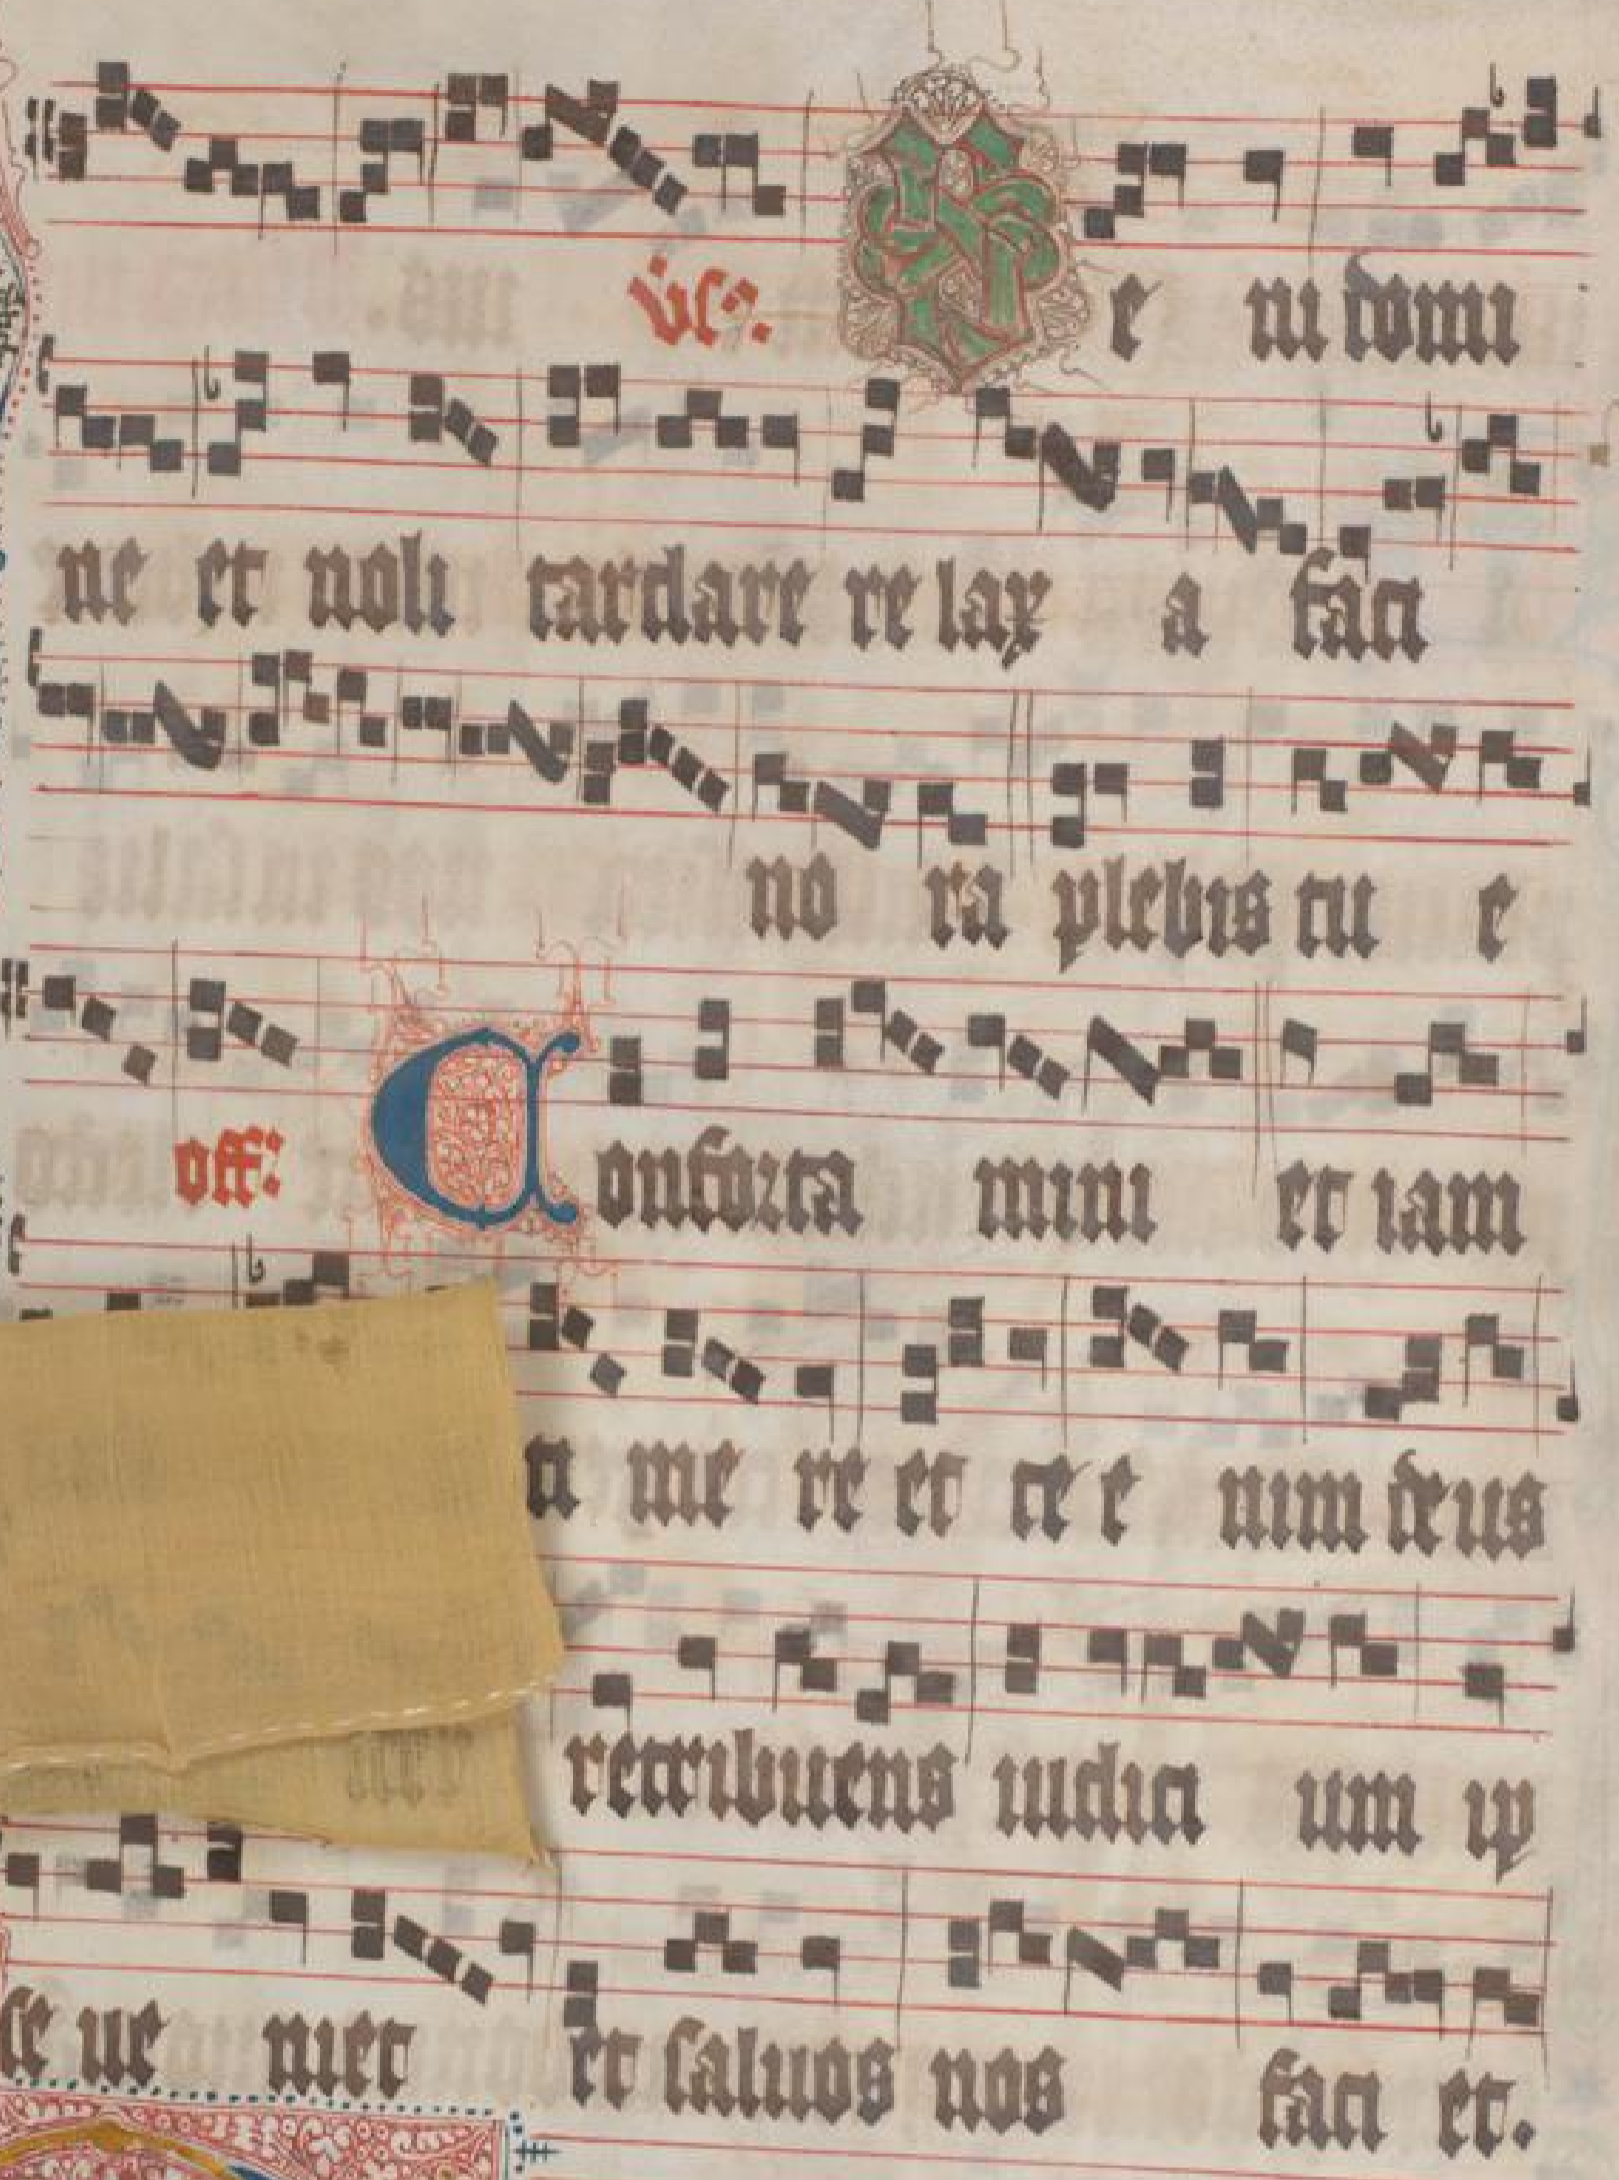 v̇s: Ve ni domi
ne et noli tardare re lax a faci
no ra plebis tu e
off: Conforta mini et iam
ti me re ec ce e nim deus
retribuens iudici um ip
se ue niet et saluos nos faci et.